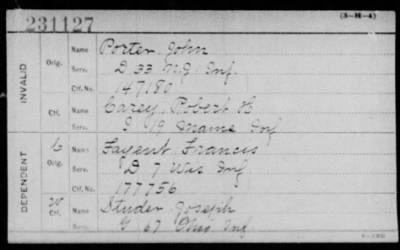 231127
(3-H-4)
INVALID
Orig.
Name Porter, John
Serv. D 33 N.J. Inf.
Ctf. No. 147180
Ctf.
Name Carey, Robert H
Serv. I 19 Maine Inf
DEPENDENT
C
Orig.
Name Fayent Francis
Serv. D 7 Wis Inf
Ctf. No. 177756
W
Ctf.
Name Studer Joseph
Serv. G 67 Ohio Inf